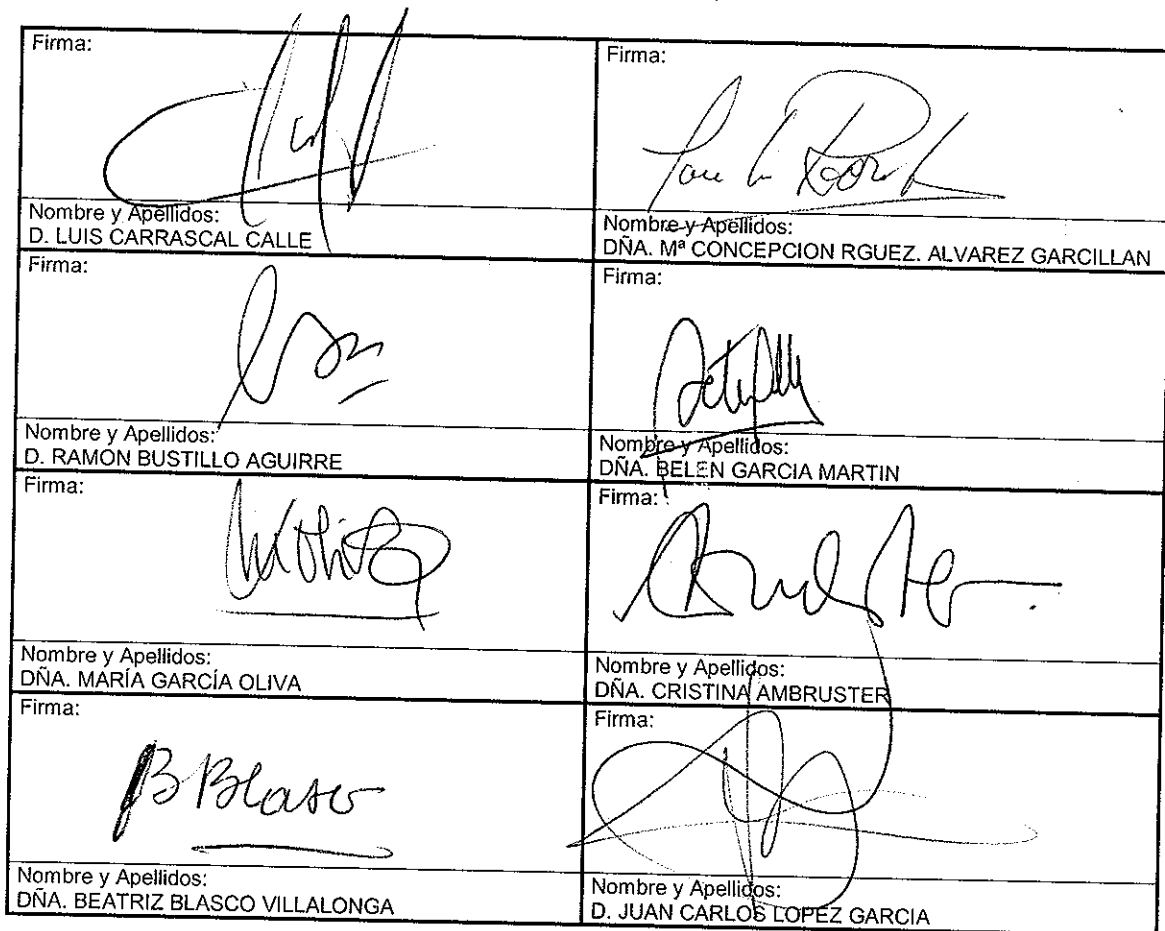 Firma:
Firma:
Nombre y Apellidos:
D. LUIS CARRASCAL CALLE
Nombre y Apellidos:
DÑA. Mª CONCEPCION RGUEZ. ALVAREZ GARCILLAN
Firma:
Firma:
Nombre y Apellidos:
D. RAMON BUSTILLO AGUIRRE
Nombre y Apellidos:
DÑA. BELEN GARCIA MARTIN
Firma:
Firma:
Nombre y Apellidos:
DÑA. MARÍA GARCÍA OLIVA
Nombre y Apellidos:
DÑA. CRISTINA AMBRUSTER
Firma:
B Blasco
Firma:
Nombre y Apellidos:
DÑA. BEATRIZ BLASCO VILLALONGA
Nombre y Apellidos:
D. JUAN CARLOS LOPEZ GARCIA